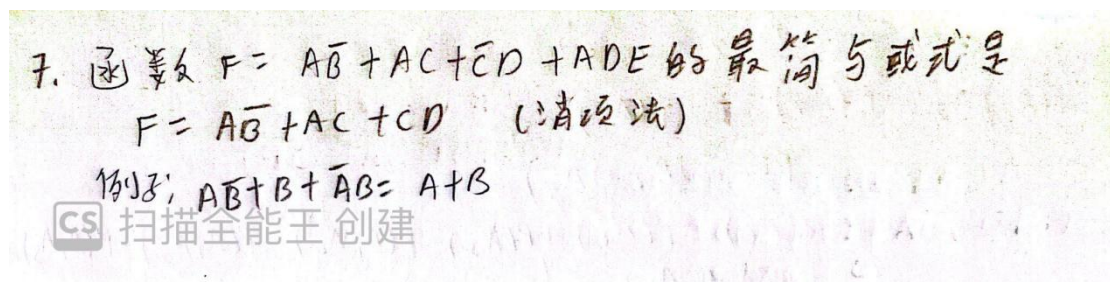 7. 函数 F = AB̅ + AC + C̅D + ADE 的最简与或式是
F = AB̅ + AC + CD (消项法)
例子: AB̅ + B + A̅B = A + B
CS 扫描全能王 创建